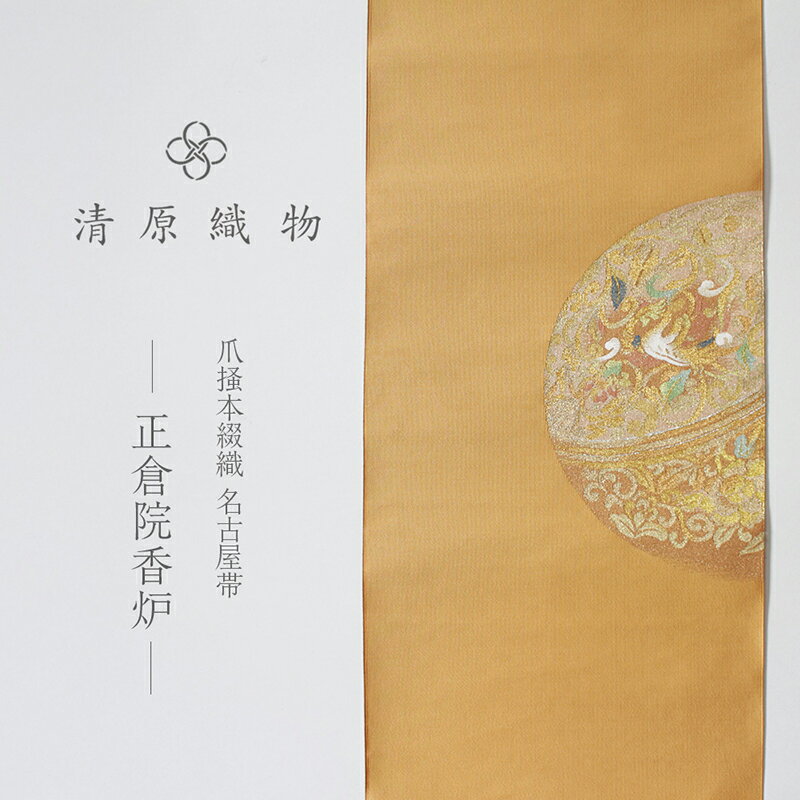 清原織物
爪掻本綴織 名古屋帯
正倉院香炉